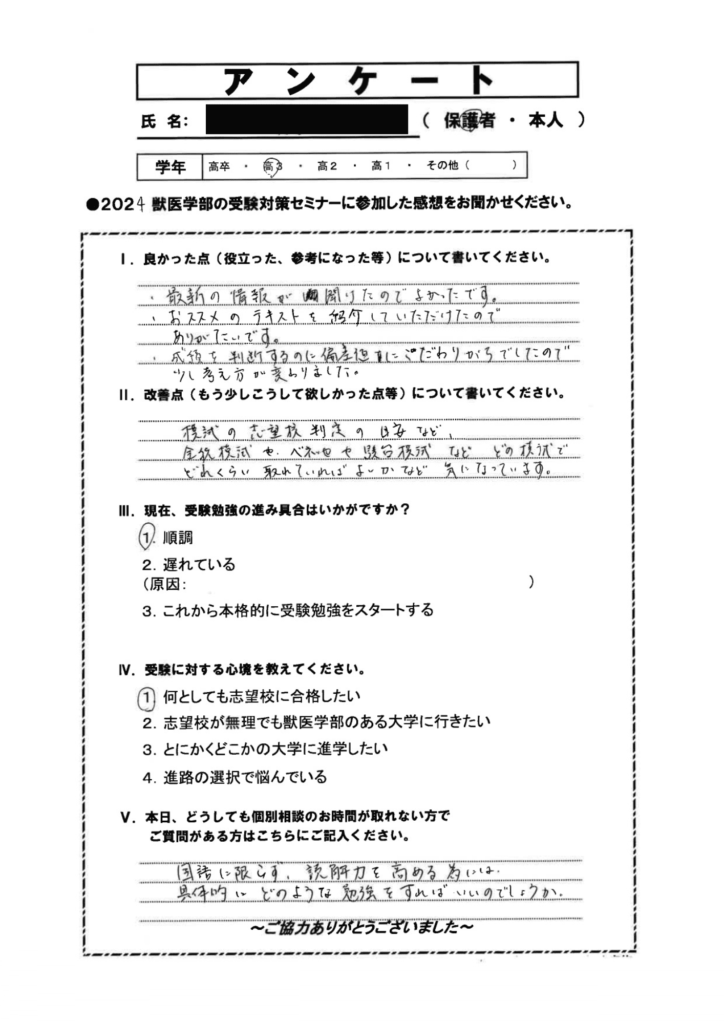 アンケート
氏 名: （ 保護者 ・ 本人 ）
学年 高卒 ・ 高3 ・ 高2 ・ 高1 ・ その他（ ）
●2024 獣医学部の受験対策セミナーに参加した感想をお聞かせください。
Ⅰ．良かった点（役立った、参考になった等）について書いてください。
・最新の情報が聞けたのでよかったです。
・おススメのテキストを紹介していただけたので
ありがたいです。
・成績を判断するのに偏差値にこだわりがちでしたので
少し考え方が変わりました。
Ⅱ．改善点（もう少しこうして欲しかった点等）について書いてください。
模試の志望校判定の目安など、
全統模試や ベネッセや 駿台模試 など どの模試で
どれくらい 取れていればよいかなど 気になっています。
Ⅲ．現在、受験勉強の進み具合はいかがですか？
1．順調
2．遅れている
（原因： ）
3．これから本格的に受験勉強をスタートする
Ⅳ．受験に対する心境を教えてください。
1 何としても志望校に合格したい
2．志望校が無理でも獣医学部のある大学に行きたい
3．とにかくどこかの大学に進学したい
4．進路の選択で悩んでいる
Ⅴ．本日、どうしても個別相談のお時間が取れない方で
ご質問がある方はこちらにご記入ください。
国語に限らず、読解力を高める為には、
具体的に どのような 勉強をすれば いいのでしょうか.
～ご協力ありがとうございました～